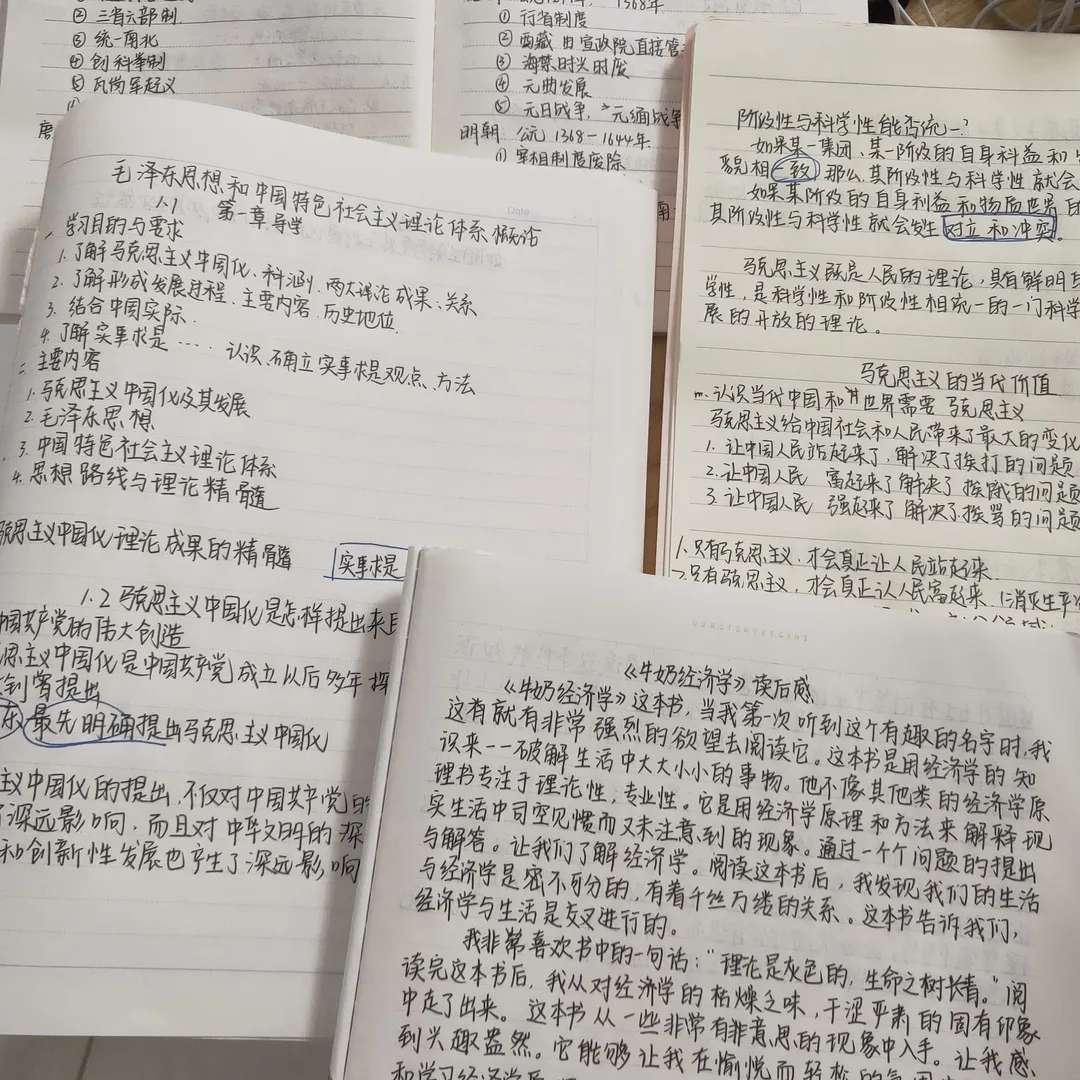 ② 三省六部制
③ 统一南北
④ 创科举制
⑤ 瓦岗军起义
1368年
① 行省制度
② 西藏由宣政院直接管
③ 海禁时兴时废
④ 元曲发展
⑤ 元日战争,元缅战争
明朝 公元1368-1644年
① 宰相制度废除
毛泽东思想和中国特色社会主义理论体系概论
1.1 第一章导学
一、学习目的与要求
1.了解马克思主义中国化、科涵、两大理论成果、关系
2.了解形成发展过程、主要内容、历史地位
3.结合中国实际.
4.了解实事求是……认识、确立实事求是观点、方法
二、主要内容
1.马克思主义中国化及其发展
2.毛泽东思想
3.中国特色社会主义理论体系
4.思想路线与理论精髓
克思主义中国化理论成果的精髓 实事求是
1.2 马克思主义中国化是怎样提出来
中国共产党的伟大创造
思主义中国化是中国共产党成立以后多年探
提出
东 最先明确提出马克思主义中国化
主义中国化的提出,不仅对中国共产党的
深远影响,而且对中华文明的深
和创新性发展也产生了深远影响
阶级性与科学性能否统一?
如果某一集团、某一阶级的自身利益和
貌相一致 那么,其阶级性与科学性就会
如果某阶级的自身利益和物质世界的
其阶级性与科学性就会发生对立和冲突。
马克思主义既是人民的理论,具有鲜明
学性,是科学性和阶级性相统一的一门科学
展的开放的理论。
马克思主义的当代价值
一.认识当代中国和 世界需要 马克思主义
马克思主义给中国社会和人民带来了最大的变化
1.让中国人民站起来了,解决了挨打的问题
2.让中国人民 富起来了解决了挨饿的问题
3 让中国人民 强起来了解决了挨骂的问题
1.只有马克思主义,才会真正让人民站起来
2只有马克思主义,才会真正认人民富起来.
《牛奶经济学》读后感
《牛奶经济学》这本书,当我第一次听到这个有趣的名字时,我
这有就有非常强烈的欲望去阅读它。这本书是用经济学的知
识来——破解生活中大大小小的事物。他不像其他类的经济学原
理书专注于理论性,专业性。它是用经济学原理和方法来解释现
实生活中司空见惯而又未注意到的现象。通过一个个问题的提出
与解答。让我们了解经济学。阅读这本书后,我发现我们的生活
与经济学是密不可分的,有着千丝万缕的关系。这本书告诉我们,
经济学与生活是交叉进行的。
我非常喜欢书中的一句话:"理论是灰色的,生命之树长青。"阅
读完这本书后,我从对经济学的枯燥乏味,干涩严肃的固有印象
中走了出来。这本书从一些非常有非意思的现象中入手。让我感
到兴趣盎然。它能够让我在愉悦而轻松的氛围